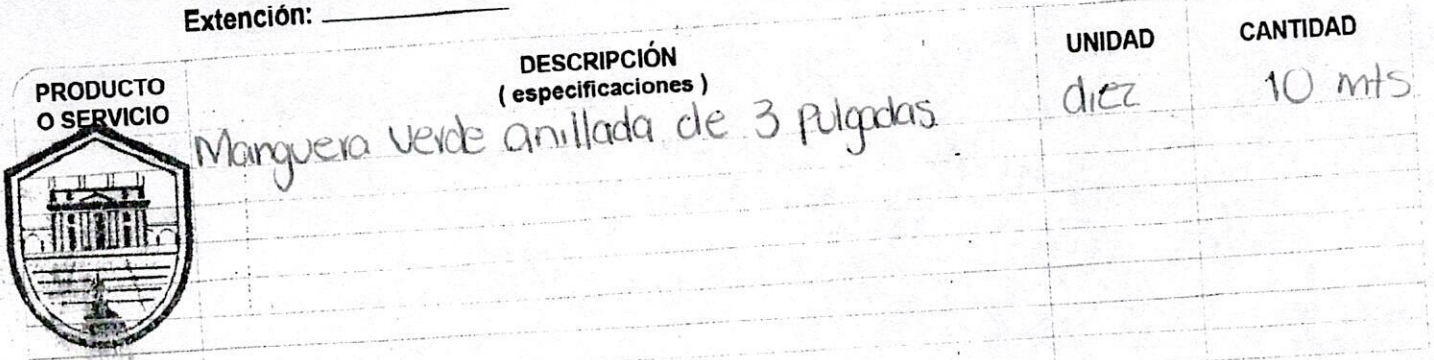 Extención:
PRODUCTO O SERVICIO
DESCRIPCIÓN
( especificaciones )
UNIDAD
CANTIDAD
Manguera verde anillada de 3 pulgadas.
diez
10 mts